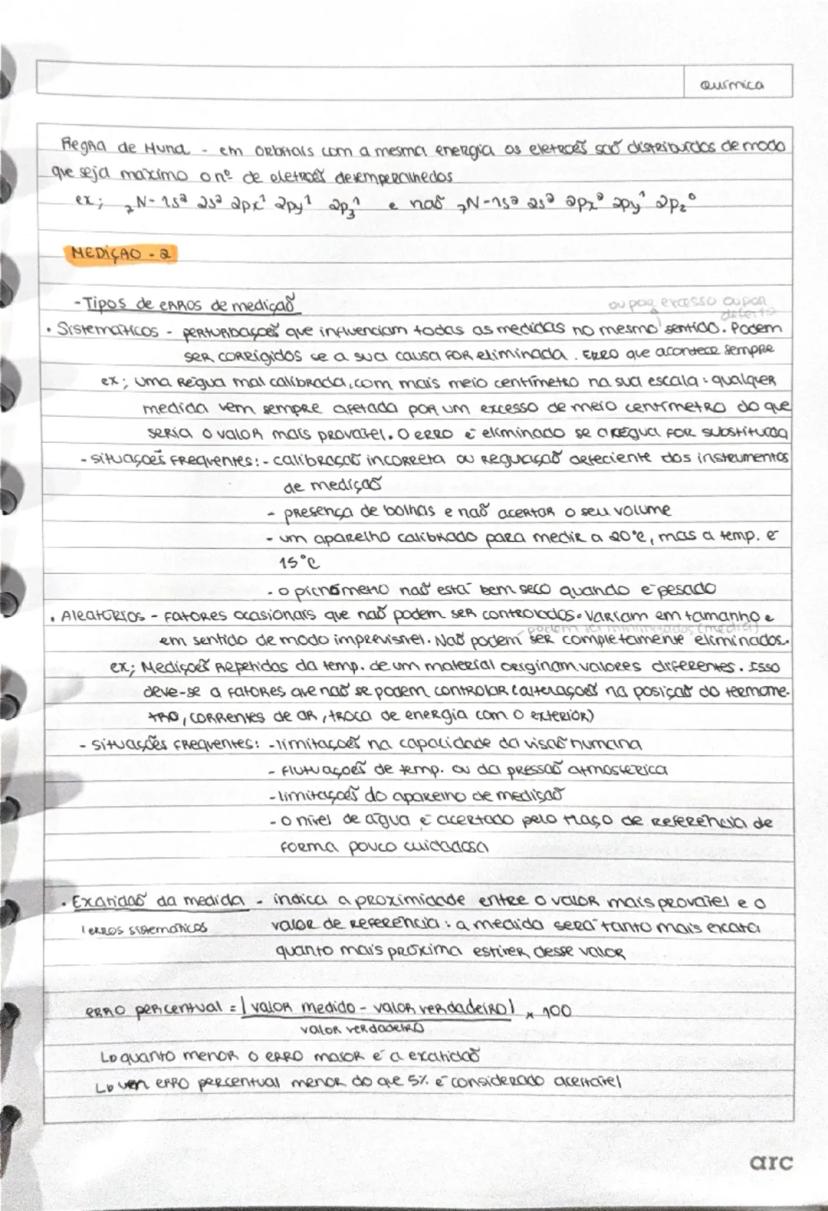 Química
Regra de Hund - em orbitais com a mesma energia os eletrões são distribuídos de modo
que seja máximo o nº de eletrões desemparelhados
ex; ₇N - 1s² 2s² 2px¹ 2py¹ 2p₃¹ e não ₇N - 1s² 2s² 2px² 2py¹ 2pz⁰
MEDIÇÃO - 2
- Tipos de erros de medição
ou por excesso ou por
defeito
• Sistemáticos - perturbações que influenciam todas as medidas no mesmo sentido. Podem
ser corrigidos se a sua causa for eliminada. Erro que acontece sempre
ex; uma régua mal calibrada, com mais meio centímetro na sua escala: qualquer
medida vem sempre afetada por um excesso de meio centímetro do que
seria o valor mais provável. O erro é eliminado se a régua for substituída
- situações frequentes: - calibração incorreta ou regulação defeciente dos instrumentos
de medição
- presença de bolhas e não acertar o seu volume
- um aparelho calibrado para medir a 20°C, mas a temp. é
15°C
- o picnómeno não está bem seco quando é pesado
• Aleatórios - fatores ocasionais que não podem ser controlados. Variam em tamanho e
podem ser minimizados (média)
em sentido de modo imprevisível. Não podem ser completamente eliminados.
ex; Medições repetidas da temp. de um material originam valores diferentes. Isso
deve-se a fatores que não se podem controlar (alterações na posição do termóme-
tro, correntes de ar, troca de energia com o exterior)
- situações frequentes: - limitações na capacidade da visão humana
- flutuações de temp. ou da pressão atmosférica
- limitações do aparelho de medição
- o nível de água é acertado pelo traço de referência de
forma pouco cuidadosa
• Exatidão da medida - indica a proximidade entre o valor mais provável e o
(erros sistemáticos valor de referência: a medida será tanto mais exata
quanto mais próxima estiver desse valor
erro percentual = |valor medido - valor verdadeiro| × 100
valor verdadeiro
↳ quanto menor o erro maior é a exatidão
↳ um erro percentual menor do que 5% é considerado aceitável
arc